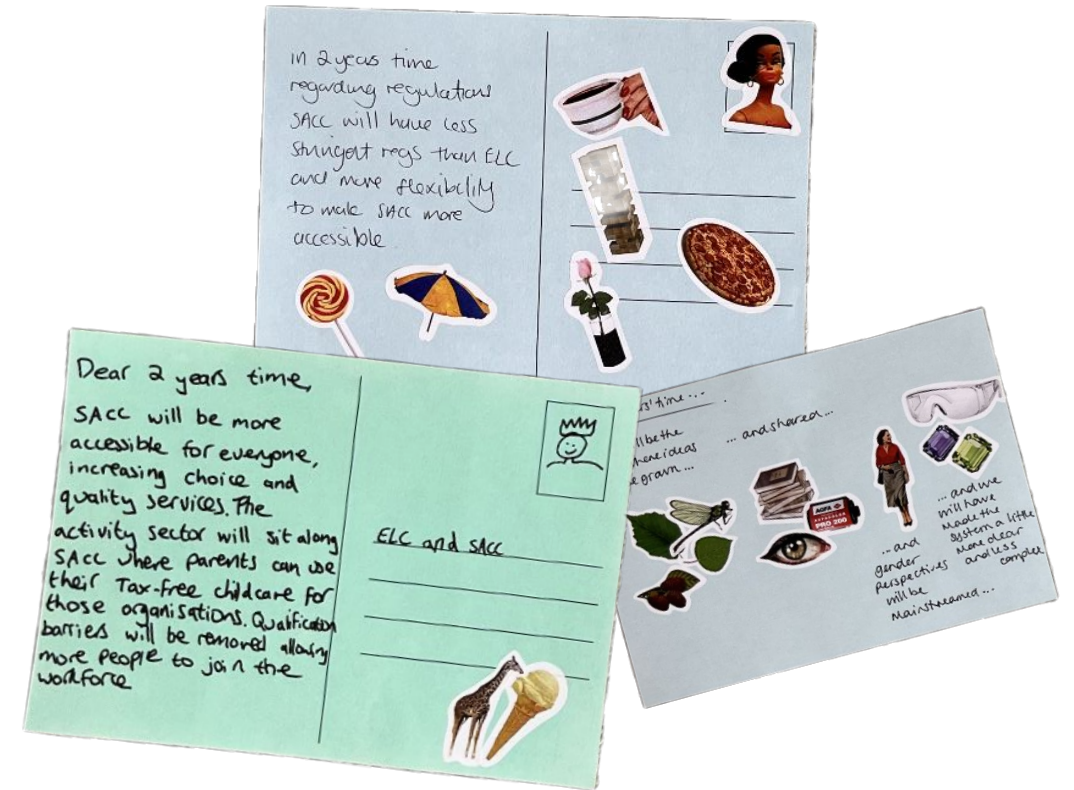 In 2 years time
regarding regulations
SACC will have less
stringent regs than ELC
and more flexibility
to make SACC more
accessible.
Dear 2 years time,
SACC will be more
accessible for everyone,
increasing choice and
quality services. The
activity sector will sit along
SACC where parents can use
their Tax-free childcare for
those organisations. Qualification
barries will be removed allowing
more people to join the
workforce
ELC and SACC
time...
be the
ideas
grown...
...and shared...
AGFA
PRO 200
...and
gender
perspectives
will be
mainstreamed...
...and we
will have
made the
system a little
more clear
and less
complex